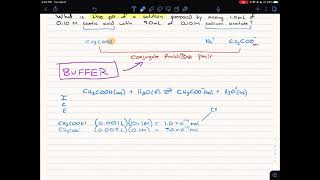 What is the pH of a solution prepared by mixing 1.0mL of
0.10 M acetic acid with 9.0mL of 0.10 M sodium acetate?
CH₃COOH Na⁺ CH₃COO⁻
Conjugate Acid/Base pair
BUFFER
CH₃COOH(aq) + H₂O(l) ⇌ CH₃COO⁻(aq) + H₃O⁺(aq)
I
C
E
CH₃COOH: (0.001L)(0.1M) = 1.0×10⁻⁴ mol
CH₃COO⁻ (0.009L)(0.1M) = 9.0×10⁻⁴ mol